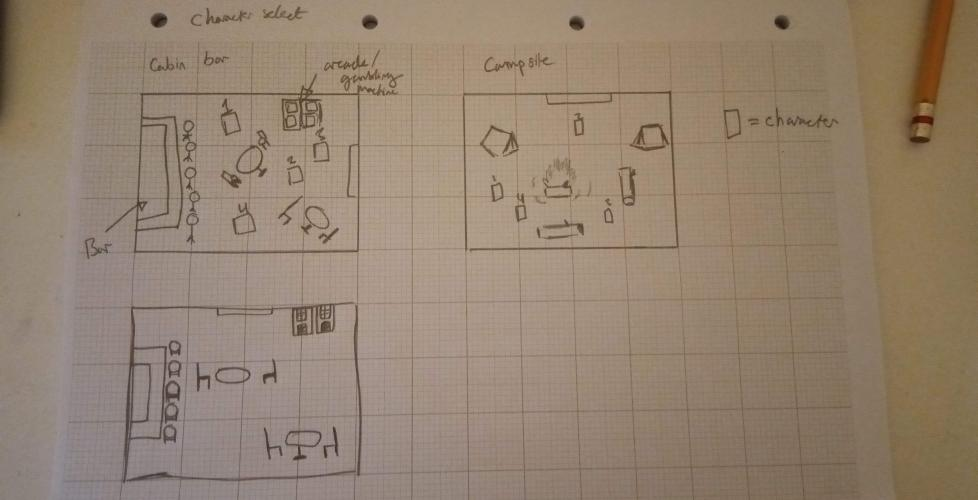 Character select
Cabin bar
arcade/
gambling
machine
Campsite
= character
1
3
2
4
Bar
3
1
4
2